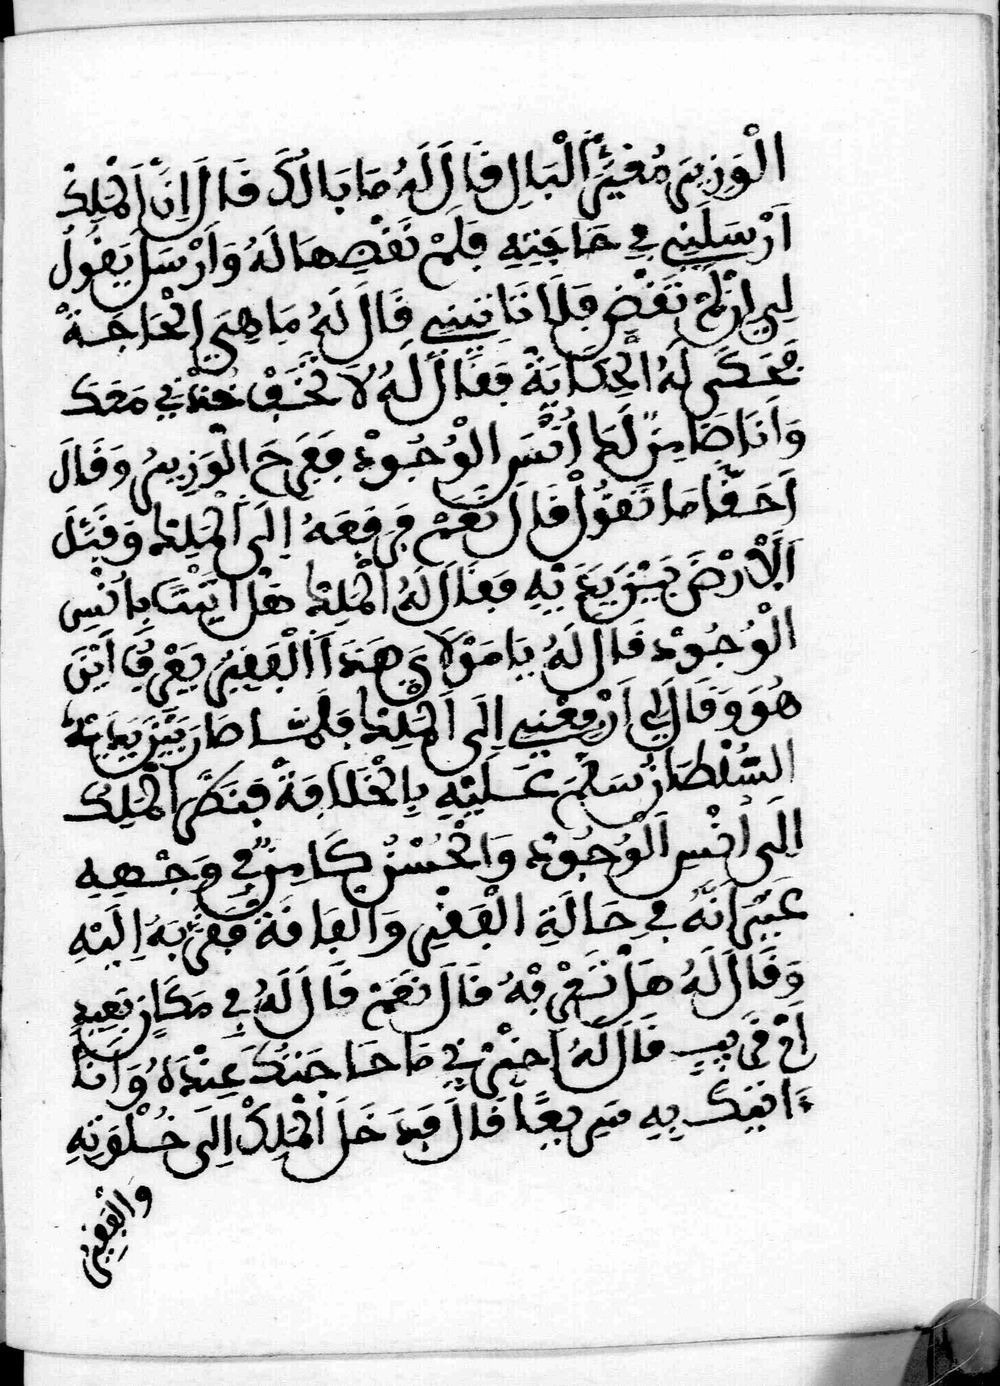 الْوَزِيرَ مُغَيَّرَ الْبَالِ فَالَ لَهُ مَا بَالُكَ فَالَ اِنَّ الْمَلِكْ
اَرْسَلَنِي فِي حَاجَتِهِ فَلَمْ نَفْضِهَا لَهُ وَاَرْسَلَ يَفُولُ
لِي اِنْ لَمْ تَفْضِ فَلَا تَاتِينِي فَالَ لَهُ مَا هِيَ الْحَاجَةْ
فَحَكَى لَهُ الْحِكَايَةْ فَفَالَ لَهُ لَا تَخَفْ خُذْنِي مَعَكَ
وَاَنَا ضَامِنٌ لَكَ اُنْسَ الْوُجُودْ فَفَرِحَ الْوَزِيرُ وَفَالَ
اَحَفًّا مَا تَفُولْ فَالَ نَعَمْ فَرَفَعَهُ اِلَى الْمَلِكْ وَفَبَّلَ
الْاَرْضَ بَيْنَ يَدَيْهِ فَفَالَ لَهُ الْمَلِكْ هَلْ اَتَيْتَ بِاُنْسِ
الْوُجُودْ فَالَ لَهُ يَا مَوْلَايَ هَذَا الْفَفِيرُ يَعْرِفُ اَيْنَ
هُوَ وَفَالَ لِي اَرْفِعْنِي اِلَى الْمَلِكْ فَلَمَّا صَارَ بَيْنَ يَدَيْهِ
السُّلْطَانْ سَلَّمَ عَلَيْهِ بِالْخَلَافَةْ فَنَظَرَ الْمَلِكْ
اِلَى اُنْسِ الْوُجُودْ وَالْحُسْنُ كَامِنٌ فِي وَجْهِهِ
غَيْرَ اَنَّهُ فِي حَالَةِ الْفَفْرِ وَالْفَافَةْ فَفَرَّبَهُ اِلَيْهِ
وَفَالَ لَهُ هَلْ تَعْرِفُهُ فَالَ نَعَمْ فَالَ لَهُ فِي مَكَانٍ بَعِيدٍ
اَمْ فَرِيبٍ فَالَ لَهُ اخْبِرْنِي مَا حَاجَتُكَ عِنْدَهُ وَاَنَا
ءَاتِيكَ بِهِ سَرِيعًا فَالَ فَدَخَلَ الْمَلِكْ اِلَى خُلْوَتِهِ
وَالْفَفِيرُ